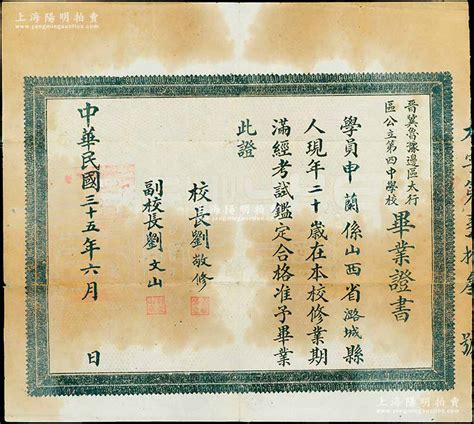 上海陽明拍賣
www.yangmingauction.com
號
晋冀魯豫邊區太行
區公立第四中學校
畢業證書
學員申蘭係山西省潞城縣
人現年二十歲在本校修業期
滿經考試鑑定合格准予畢業
此證
校長劉敬修
副校長劉文山
中華民國三十五年六月 日
上海陽明拍賣
www.yangmingauction.com